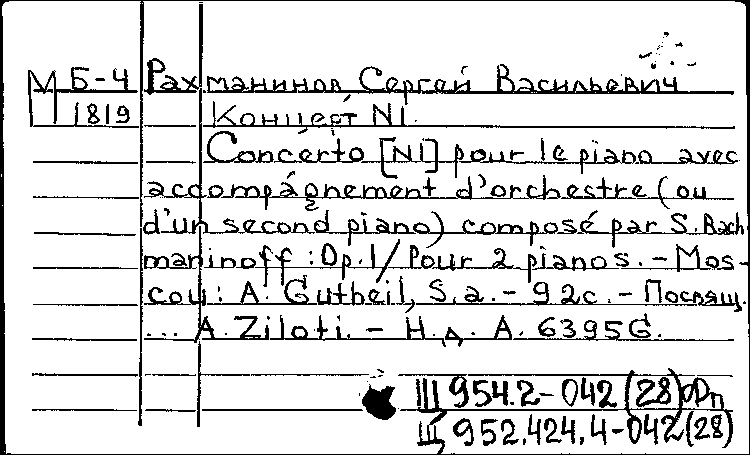 М Б-4 Рахманинов, Сергей Васильевич
1819 Концерт N1.
Concerto [N1] pour le piano avec
accompágnement d'orchestre (ou
d'un second piano) composé par S. Rach
maninoff : Op. 1/ Pour 2 pianos. - Mos-
cou : A. Gutheil, S. a. - 92c. - Посвящ.
... A. Ziloti. - Н.д. A. 6395G.
Щ 954.2-042 (28) Фп
Щ 952.424.4-042(28)